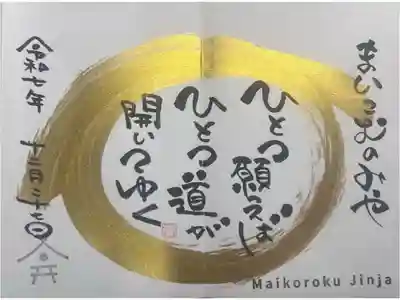 のみや
ひとつ願えば
ひとつ道が
開いてゆく
令和七年 十二月二十七日
Maikoroku Jinja